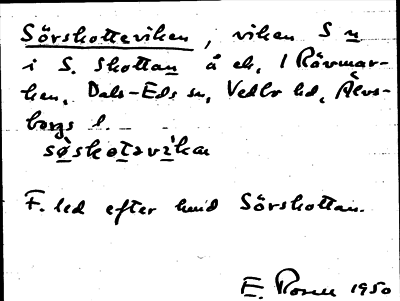 Sörskotteviken, viken S n
i S. Skottan å ek. 1 Rävmar-
ken, Dals-Eds sn, Vedbo hd, Älvs-
borgs l.
søskotəvikan
F. led efter hmd Sörskottan.
E. Rosell 1950